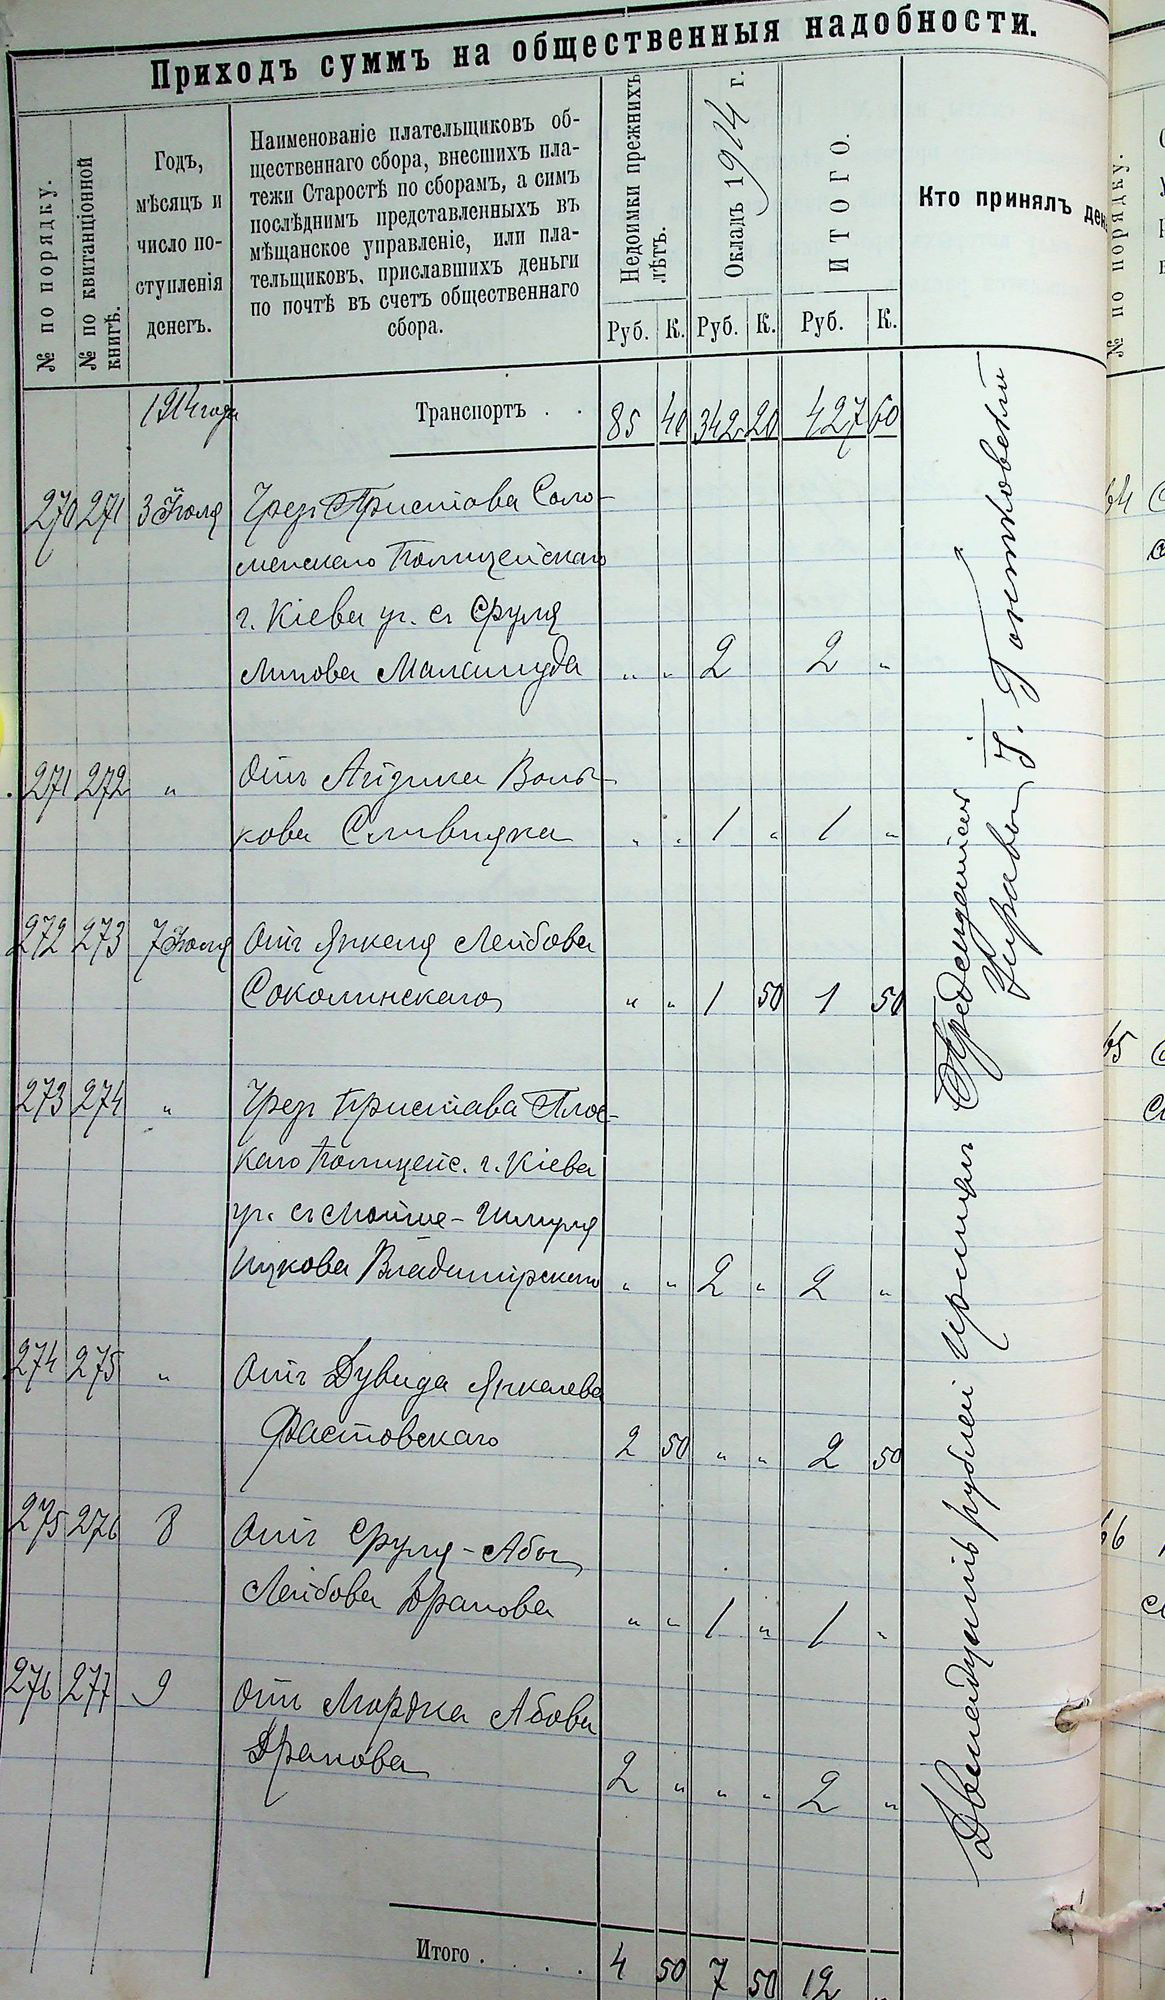 Приходъ суммъ на общественныя надобности.
№ по порядку.
№ по квитанціонной
книгѣ.
Годъ,
мѣсяцъ и
число по-
ступленія
денегъ.
Наименованіе плательщиковъ об-
щественнаго сбора, внесшихъ пла-
тежи Старостѣ по сборамъ, а симъ
послѣднимъ представленныхъ въ
мѣщанское управленіе, или пла-
тельщиковъ, приславшихъ деньги
по почтѣ въ счетъ общественнаго
сбора.
Недоимки прежнихъ
лѣтъ.
Окладъ 1914 г.
ИТОГО.
Кто принялъ ден
Руб. К. Руб. К. Руб. К.
1914 года Транспортъ . . 85 40 342 20 427 60
270 271 3 Іюля Чрез Пристава Соло-
менскаго Полицейскаго
г. Кіева уч. съ Сруля
Липова Маламуда „ „ 2 2 „
271 272 „ Отъ Айзика Воль-
кова Сливняка „ „ 1 „ 1 „
272 273 7 Іюля Отъ Янкеля Лейбова
Соколинскаго „ „ 1 50 1 50
273 274 „ Чрез Пристава Плос-
каго Полицейс. г. Кіева
уч. съ Мойше-Шмуля
Ицкова Владимірскаго „ „ 2 „ 2 „
274 275 „ Отъ Дувида Янкелева
Фастовскаго 2 50 „ „ 2 50
275 276 8 Отъ Сруля-Абы
Лейбова Драпова „ „ 1 „ 1 „
276 277 9 Отъ Мордка Абова
Драпова 2 „ „ „ 2 „
Итого . . . . 4 50 7 50 12 „
Двенадцать рублей принялъ Предсѣдатель
Управы Г. Гонтковскій
№ по порядку.
64
65
66